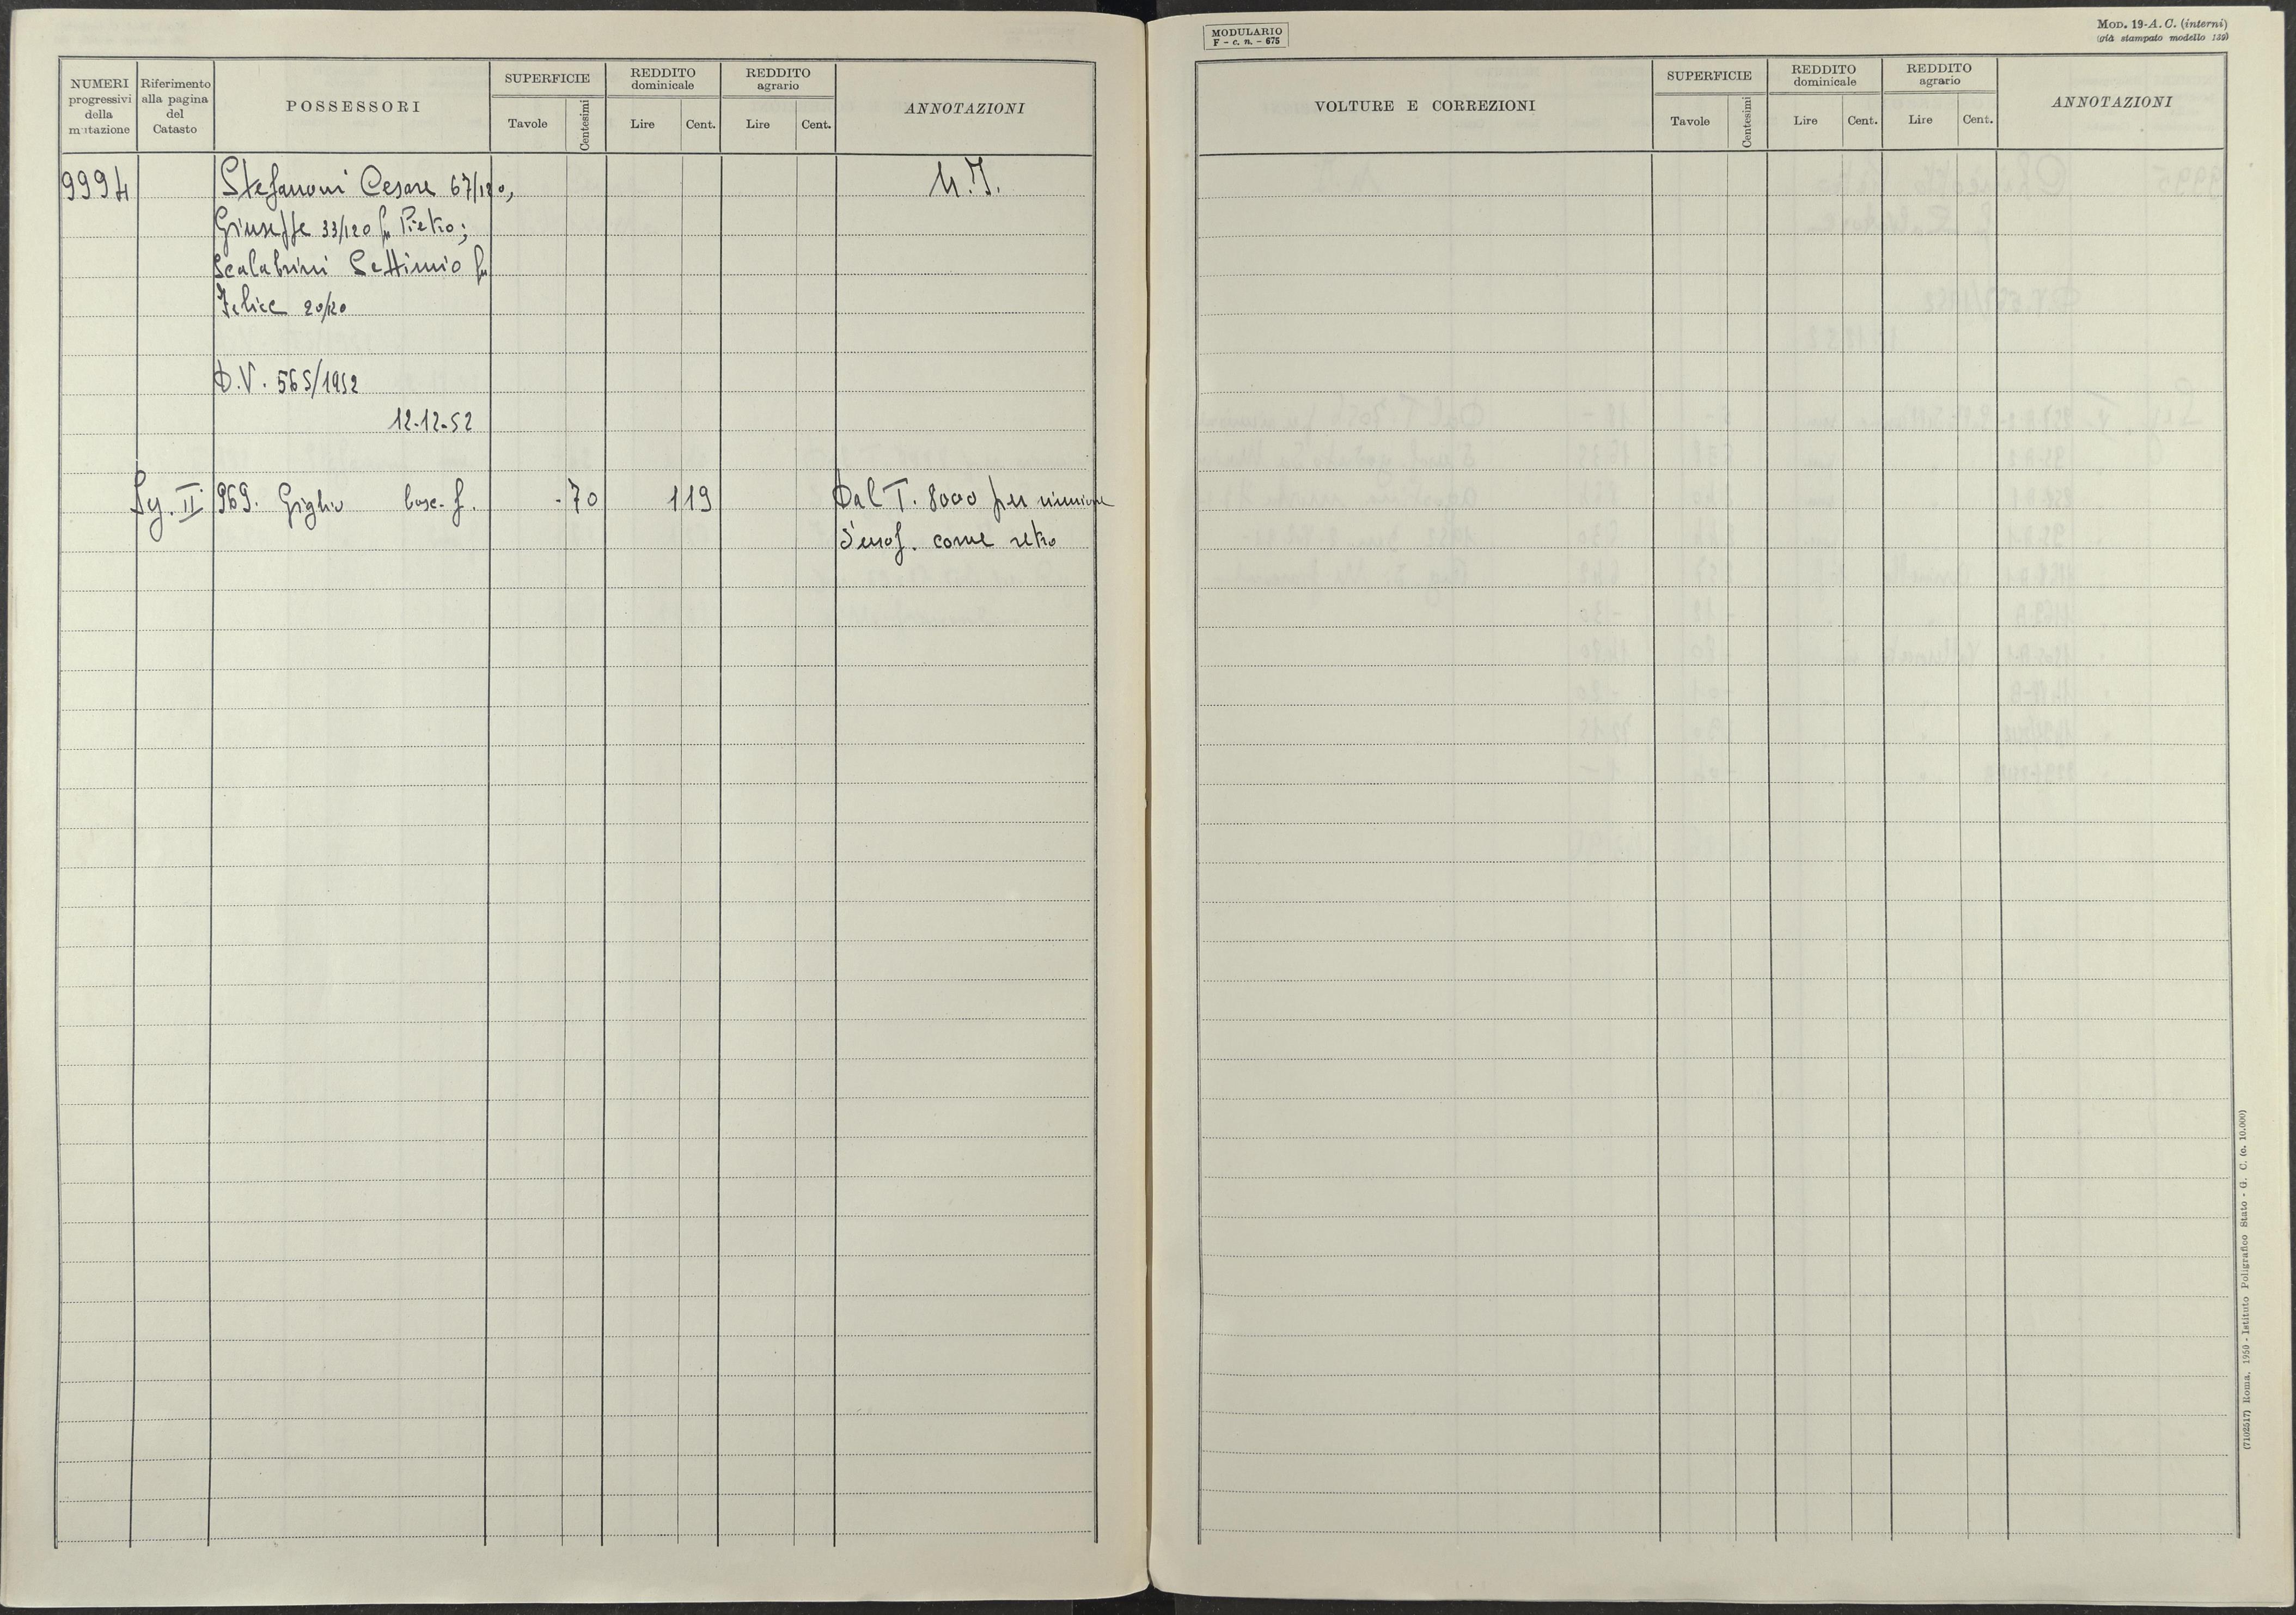 NUMERI
progressivi
della
mutazione
Riferimento
alla pagina
del
Catasto
POSSESSORI
SUPERFICIE
Tavole
Centesimi
REDDITO
dominicale
Lire
Cent.
REDDITO
agrario
Lire
Cent.
ANNOTAZIONI
9994
Stefanoni Cesare 67/120,
Giuseppe 33/120 fu Pietro;
Scalabrini Settimio fu
Felice 20/120
D.V. 565/1952
12-12-52
II 969. Giglio bosc. f. -70 119 Dal T. 8000 per riunione
d'usuf. come retro
MODULARIO
F - c. n. - 675
MOD. 19-A. C. (interni)
(già stampato modello 139)
VOLTURE E CORREZIONI
SUPERFICIE
Tavole
Centesimi
REDDITO
dominicale
Lire
Cent.
REDDITO
agrario
Lire
Cent.
ANNOTAZIONI
(7102517) Roma, 1950 - Istituto Poligrafico Stato - G. C. (c. 10.000)